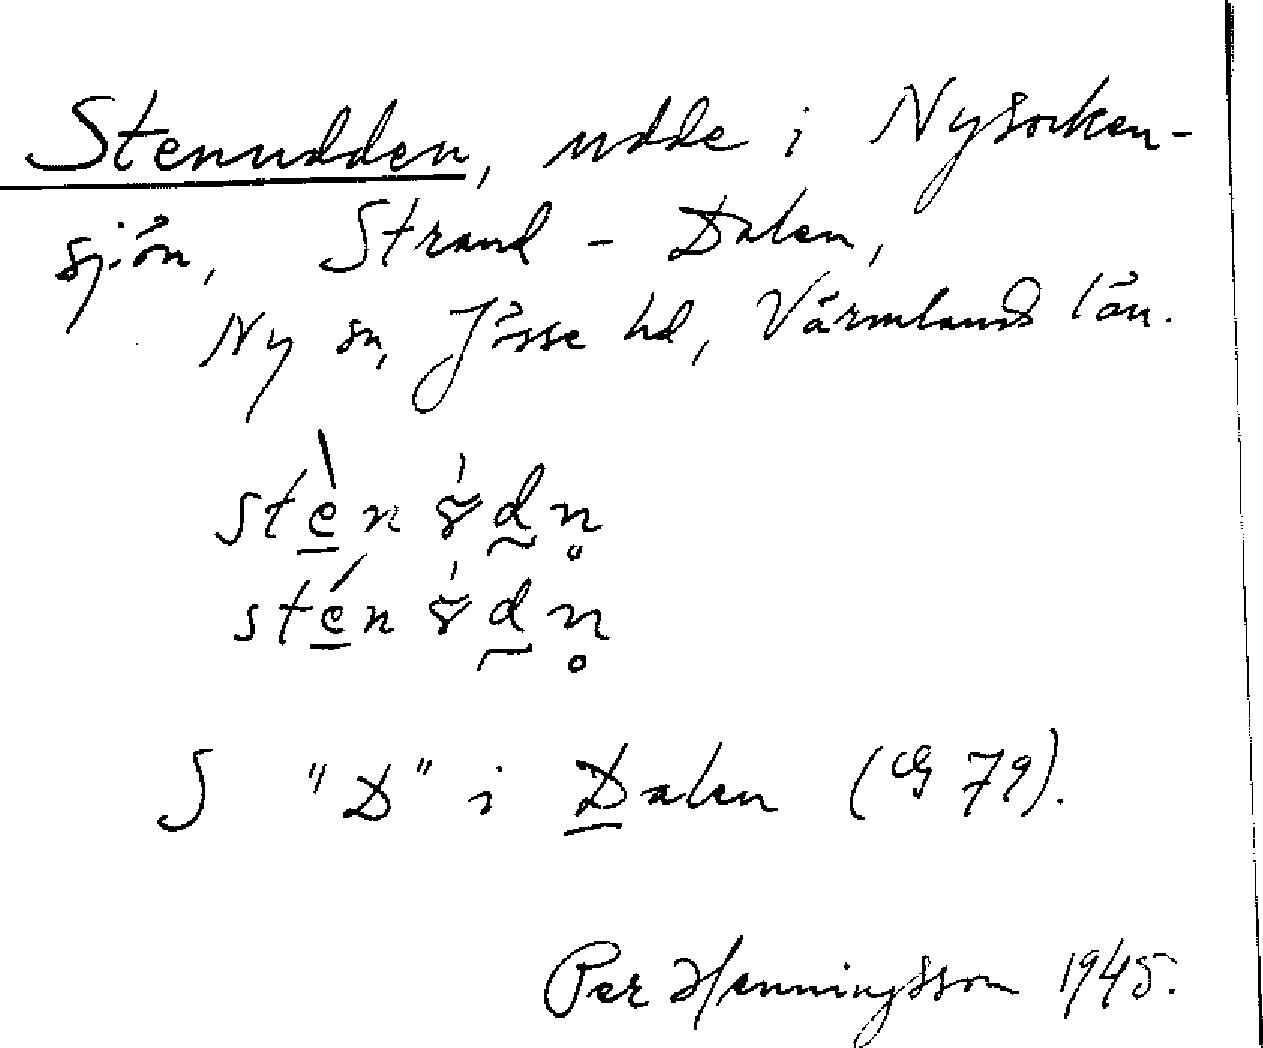 Stenudden, udde i Nysocken-
sjön, Strand - Dalen,
Ny sn, Jösse hd, Värmlands län.
stèn dn̥
stén dn̥
S "D" i Dalen (G 79).
Per Henningsson 1945.